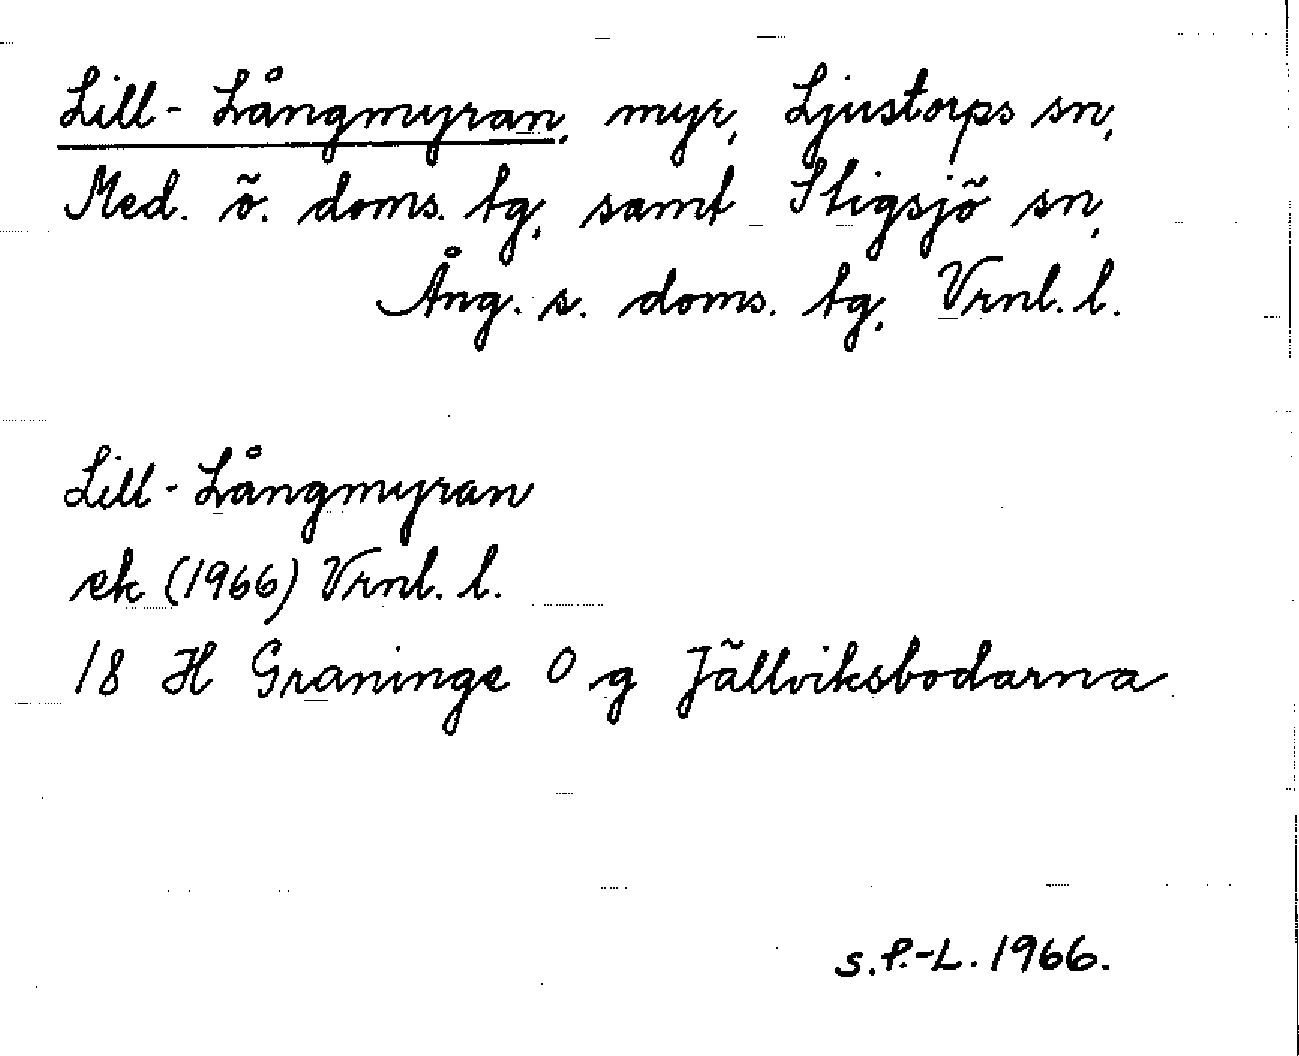 Lill-Långmyran, myr, Ljustorps sn,
Med. ö. doms. tg, samt Stigsjö sn,
Ång. s. doms. tg, Vrnl. l.
Lill-Långmyran
ek (1966) Vrnl. l.
18 H Graninge O g Jällviksbodarna
S.P.-L. 1966.